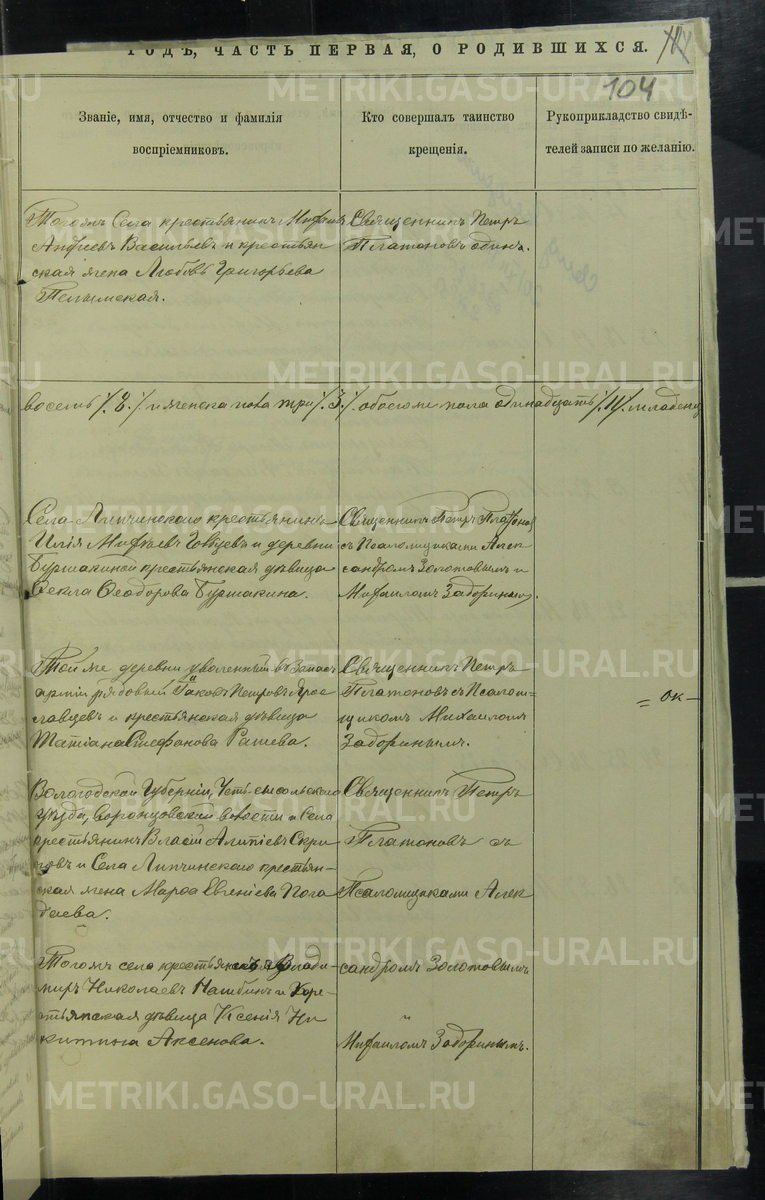 РОДЪ, ЧАСТЬ ПЕРВАЯ, О РОДИВШИХСЯ.
104
Званіе, имя, отчество и фамилія
воспріемниковъ.
Кто совершалъ таинство
крещенія.
Рукоприкладство свидѣ-
телей записи по желанію.
Тогожъ Села крестьянинъ
Андреевъ Васильевъ и крестьян
ская жена Любовь Григорьева
Пелымская.
Священникъ Петръ
Платоновъ одинъ.
восемь /. 8. /. и женска пола три /. 3. /. обоего пола одинадцать /. 11 /. младенц
Села Липчинского крестьянинъ
Илія и деревни
Буршакиной крестьянская дѣвица
Ѳекла Ѳеодорова Буршакина.
Священникъ Петръ Платонов
съ Псаломщиками Алек
сандромъ Золотовымъ и
Михаиломъ Задоринымъ.
Той же деревни уволенный въ запасъ
арміи рядовый Іаковъ Петровъ Яро
славцевъ и крестьянская дѣвица
Татіана Стефанова Рашева.
Священникъ Петръ
Платоновъ съ Псалом=
щикомъ Михаиломъ
Задоринымъ.
= ок —
Вологодской Губерніи, Усть-сысольского
уѣзда, Воронцовской волости и Села
крестьянинъ Власій Алипіевъ
и Села Липчинского крестьян-
ская жена Марѳа Евгеніева Пога
даева.
Священникъ Петръ
Платоновъ съ
Псаломщиками Алек
Тогожъ села крестьянскій Влади-
миръ Николаевъ и кре-
стьянская дѣвица Ксенія Ни
китина Аксенова.
сандромъ Золотовымъ
и
Михаиломъ Задоринымъ.
METRIKI.GASO-URAL.RU